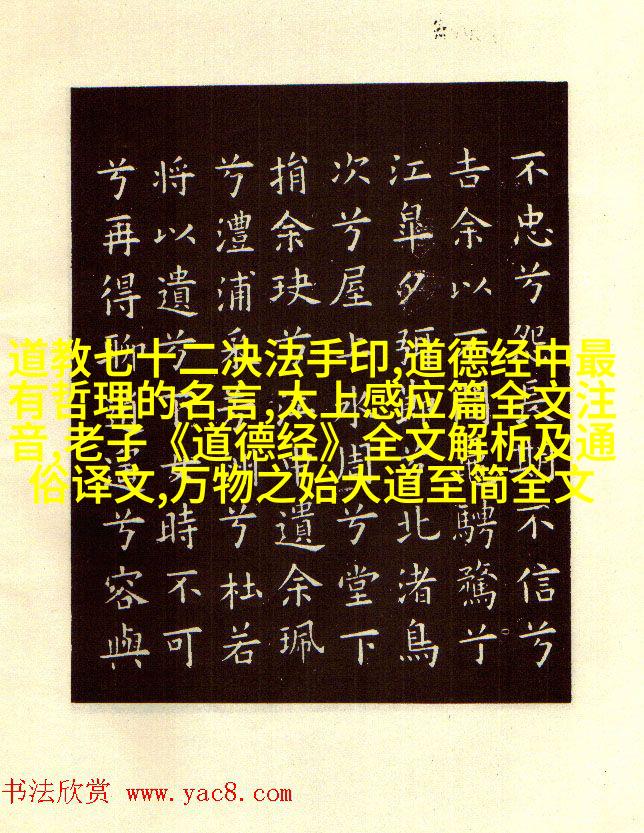 道教七十二决法手印,道德经中最
有哲理的名言,太上感应篇全文注
音,老子《道德经》全文解析及通
俗译文,万物之始大道至简全文
不忠兮怨不信兮
告余以騁騖兮
江皋夕弭北渚鳥
次兮屋上水周兮堂下
捐余玦兮遺余珮
兮澧浦采兮杜若
將以遺兮下女時不可
兮再得聊兮容與
书法欣赏 www.yac8.com